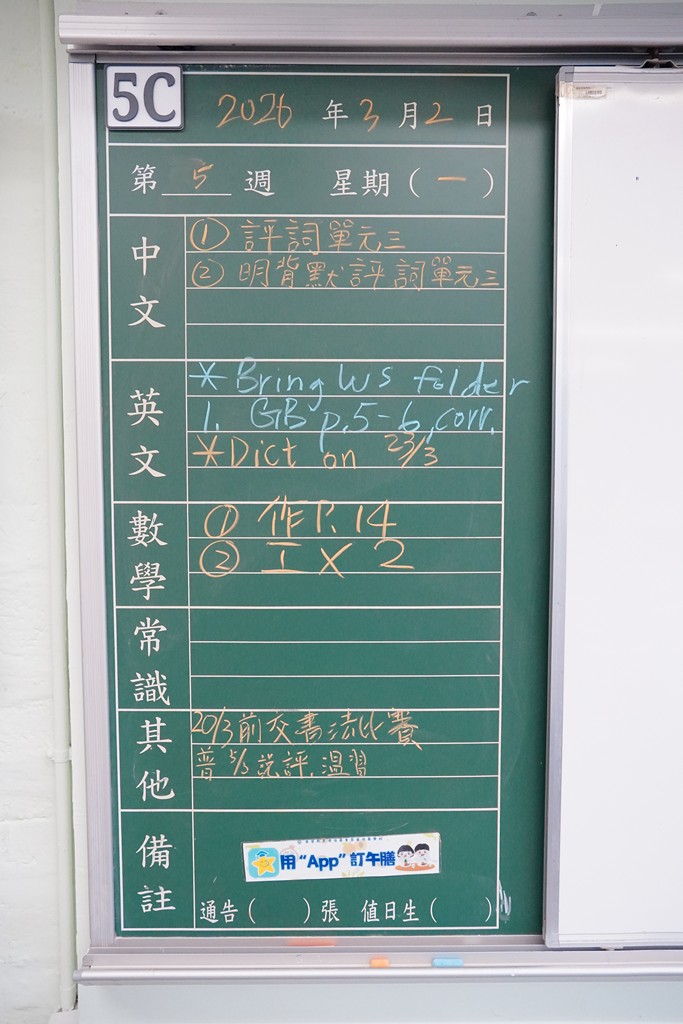 5C
2026 年 3 月 2 日
第 5 週 星期 ( 一 )
中文
① 評詞單元三
② 明背默評詞單元三
英文
* Bring WS folder
1. GB p.5-6, corr.
* Dict on 23/3
數學
① 作P.14
② 工 X 2
常識
其他
20/3前交書法比賽
普 5/3 說評, 溫習
備註
用 “App” 訂午膳
通告 ( ) 張 值日生 ( )